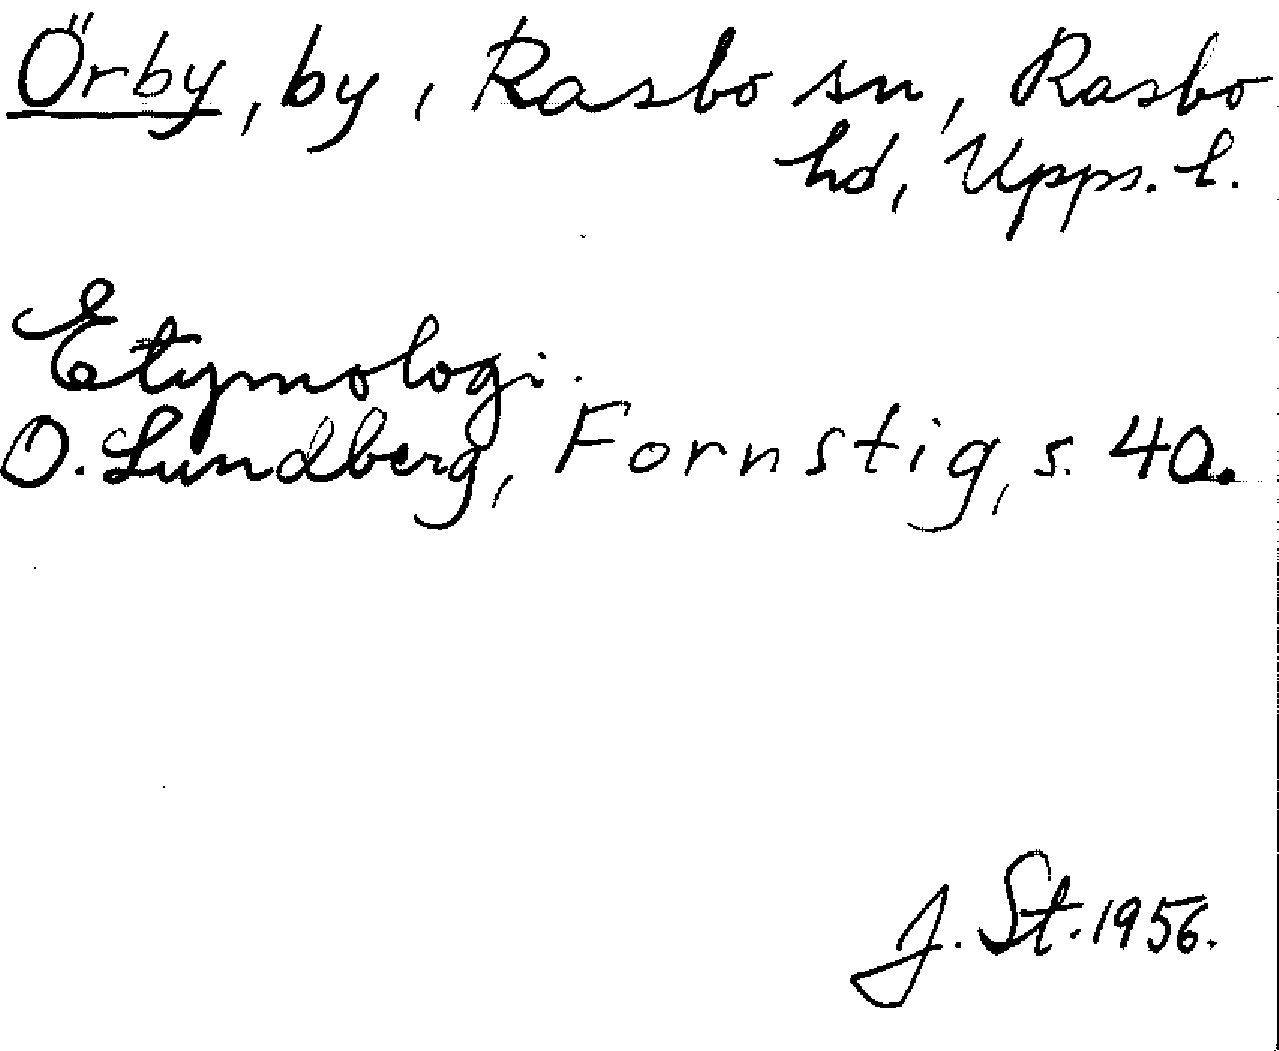 Örby, by, Rasbo sn, Rasbo
hd, Upps. l.
Etymologi.
O. Lundberg, Fornstig, s. 40.
J. St. 1956.